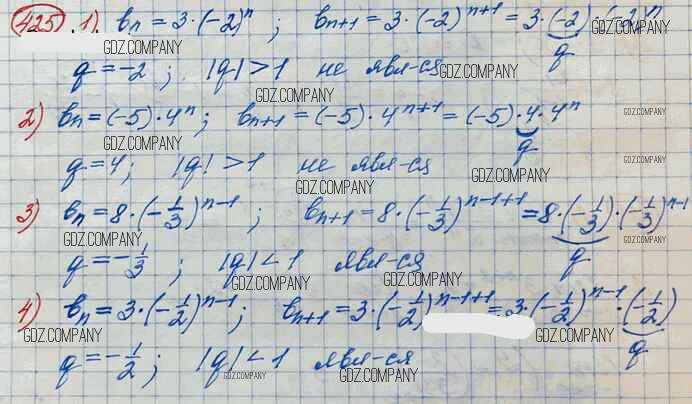 425. 1) bₙ = 3·(-2)ⁿ ; bₙ₊₁ = 3·(-2)ⁿ⁺¹ = 3·(-2)·(-2)ⁿ
GDZ.COMPANY GDZ.COMPANY q
q = -2 ; |q| > 1 не явл-ся GDZ.COMPANY
GDZ.COMPANY
2) bₙ = (-5)·4ⁿ ; bₙ₊₁ = (-5)·4ⁿ⁺¹ = (-5)·4·4ⁿ GDZ.COMPANY
GDZ.COMPANY q
q = 4; |q| > 1 не явл-ся GDZ.COMPANY
GDZ.COMPANY GDZ.COMPANY
3) bₙ = 8·(-1/3)ⁿ⁻¹ ; bₙ₊₁ = 8·(-1/3)ⁿ⁻¹⁺¹ = 8·(-1/3)·(-1/3)ⁿ⁻¹
GDZ.COMPANY GDZ.COMPANY q
q = -1/3 ; |q| < 1 явл-ся
GDZ.COMPANY GDZ.COMPANY
4) bₙ = 3·(-1/2)ⁿ⁻¹ ; bₙ₊₁ = 3·(-1/2)ⁿ⁻¹⁺¹ = 3·(-1/2)ⁿ⁻¹·(-1/2)
GDZ.COMPANY GDZ.COMPANY GDZ.COMPANY q
q = -1/2 ; |q| < 1 явл-ся
GDZ.COMPANY GDZ.COMPANY